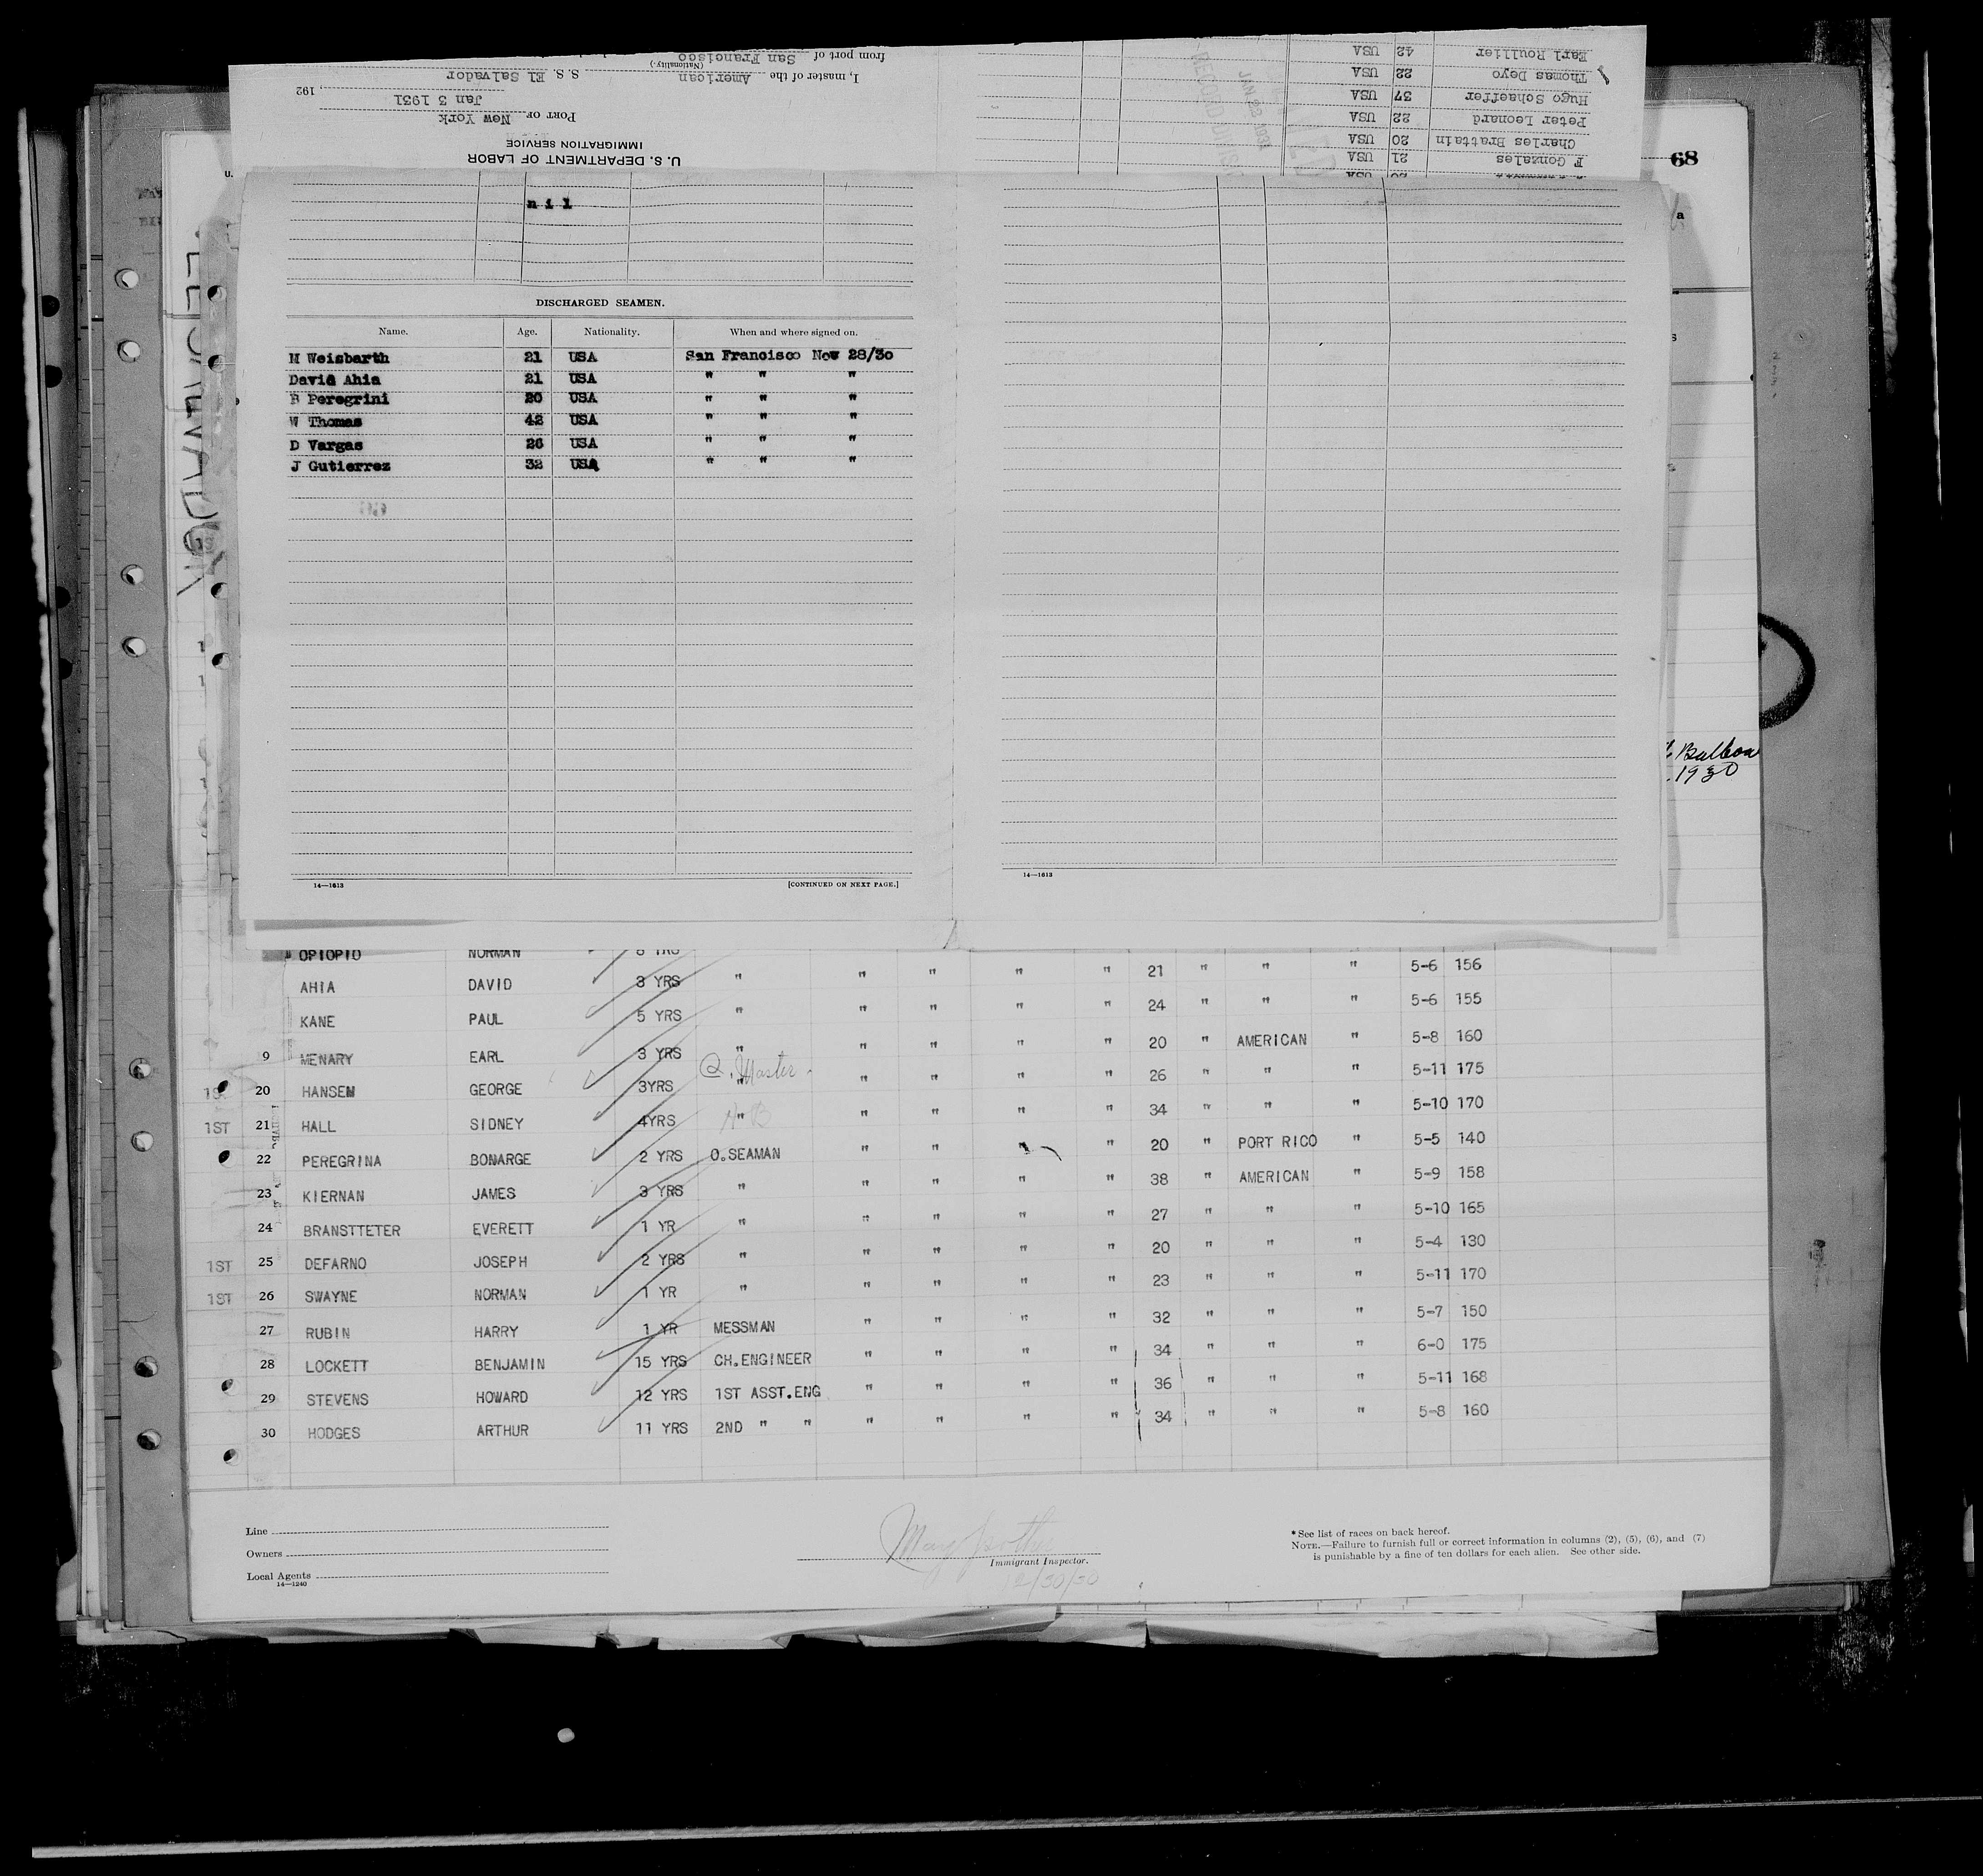 from port of San Francisco
(Nationality.)
I, master of the American S. S. El Salvador
Jan 3 1931, 192
PORT OF New York
IMMIGRATION SERVICE
U. S. DEPARTMENT OF LABOR
Earl Roullier 42 USA
Thomas Deyo 22 USA
Hugo Schaeffer 37 USA
Peter Leonard 22 USA
Charles Brattain 20 USA
F Gonzales 21 USA
68
n i l
DISCHARGED SEAMEN.
Name. Age. Nationality. When and where signed on.
M Weisbarth 21 USA San Francisco Nov 28/30
David Ahia 21 USA " " "
B Peregrini 20 USA " " "
W Thomas 42 USA " " "
D Vargas 26 USA " " "
J Gutierrez 32 USA " " "
14—1613 [CONTINUED ON NEXT PAGE.]
14—1613
Balboa
1930
OPIOPIO NORMAN
AHIA DAVID 3 YRS " " " " " 21 " " " 5-6 156
KANE PAUL 5 YRS " " " " " 24 " " " 5-6 155
9 MENARY EARL 3 YRS " " " " " 20 " AMERICAN " 5-8 160
20 HANSEN GEORGE 3YRS Q. Master " " " " " 26 " " " 5-11 175
1ST 21 HALL SIDNEY 4YRS " " " " " 34 " " " 5-10 170
22 PEREGRINA BONARGE 2 YRS O.SEAMAN " " " " 20 " PORT RICO " 5-5 140
23 KIERNAN JAMES 3 YRS " " " " " 38 " AMERICAN " 5-9 158
24 BRANSTTETER EVERETT 1 YR " " " " " 27 " " " 5-10 165
1ST 25 DEFARNO JOSEPH 2 YRS " " " " " 20 " " " 5-4 130
1ST 26 SWAYNE NORMAN 1 YR " " " " " 23 " " " 5-11 170
27 RUBIN HARRY 1 YR MESSMAN " " " " 32 " " " 5-7 150
28 LOCKETT BENJAMIN 15 YRS CH.ENGINEER " " " " 34 " " " 6-0 175
29 STEVENS HOWARD 12 YRS 1ST ASST.ENG " " " " 36 " " " 5-11 168
30 HODGES ARTHUR 11 YRS 2ND " " " " " " 34 " " " 5-8 160
Line
Owners
Local Agents
14—1240
Immigrant Inspector.
12/30/30
*See list of races on back hereof.
NOTE.—Failure to furnish full or correct information in columns (2), (5), (6), and (7)
is punishable by a fine of ten dollars for each alien. See other side.